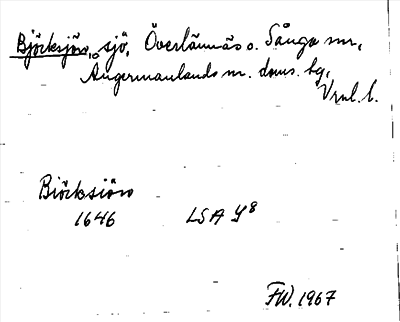 Björksjön, sjö, Överlännäs o. Sånga snr,
Ångermanlands m. doms. hg,
Vrnl. l.
Biörksiön
1646 LSA Y8
FW. 1967